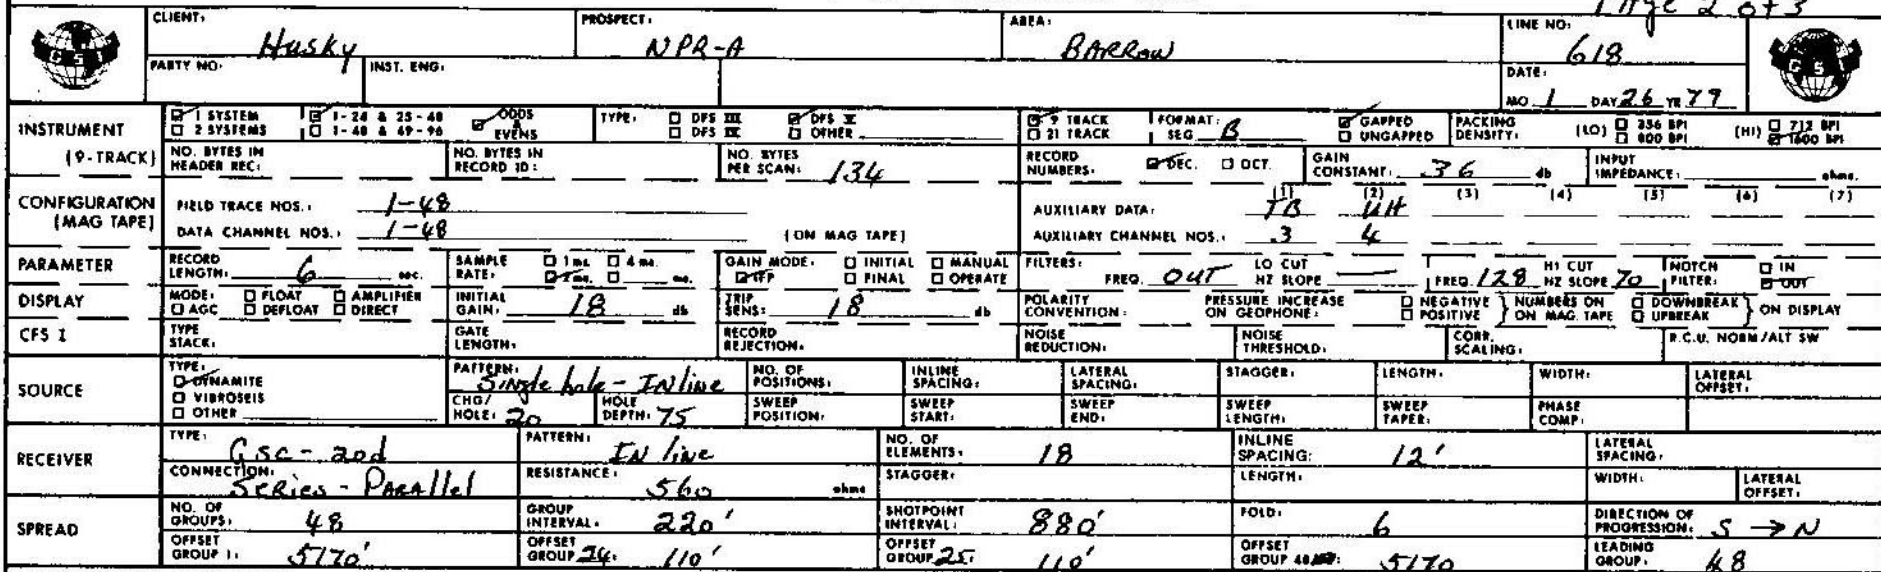 Page 2 of 3
CLIENT: Husky PROSPECT: NPR-A AREA: BARROW LINE NO: 618
GSI
PARTY NO: INST. ENG: DATE: MO 1 DAY 26 YR 79
GSI
INSTRUMENT (9-TRACK)
1 SYSTEM 1-24 & 25-48 ODDS & EVENS TYPE: DFS III DFS V 9 TRACK FORMAT: SEG B GAPPED PACKING DENSITY: (LO) 356 BPI (HI) 712 BPI
2 SYSTEMS 1-48 & 49-96 DFS IV OTHER 21 TRACK UNGAPPED 800 BPI 1600 BPI
NO. BYTES IN HEADER REC: NO. BYTES IN RECORD ID: NO. BYTES PER SCAN: 134 RECORD NUMBERS: DEC. OCT. GAIN CONSTANT: 36 db INPUT IMPEDANCE: ohms.
CONFIGURATION (MAG TAPE)
(1) (2) (3) (4) (5) (6) (7)
FIELD TRACE NOS.: 1-48 AUXILIARY DATA: TB UH
DATA CHANNEL NOS.: 1-48 (ON MAG TAPE) AUXILIARY CHANNEL NOS.: 3 4
PARAMETER RECORD LENGTH: 6 sec. SAMPLE RATE: 1 ms. 4 ms. 2 ms. ms. GAIN MODE: INITIAL MANUAL IFP FINAL OPERATE FILTERS: FREQ. OUT LO CUT HZ SLOPE FREQ. 128 HI CUT HZ SLOPE 70 NOTCH FILTER: IN OUT
DISPLAY MODE: FLOAT AMPLIFIER AGC DEFLOAT DIRECT INITIAL GAIN: 18 db TRIP SENS: 18 db POLARITY CONVENTION: PRESSURE INCREASE ON GEOPHONE: NEGATIVE POSITIVE } NUMBERS ON MAG. TAPE DOWNBREAK UPBREAK } ON DISPLAY
CFS I TYPE STACK: GATE LENGTH: RECORD REJECTION: NOISE REDUCTION: NOISE THRESHOLD: CORR. SCALING: R.C.U. NORM/ALT SW
SOURCE TYPE: DYNAMITE VIBROSEIS OTHER PATTERN: Single hole - INline NO. OF POSITIONS: INLINE SPACING: LATERAL SPACING: STAGGER: LENGTH: WIDTH: LATERAL OFFSET:
CHG/HOLE: 20 HOLE DEPTH: 75 SWEEP POSITION: SWEEP START: SWEEP END: SWEEP LENGTH: SWEEP TAPER: PHASE COMP:
RECEIVER TYPE: GSC-20d PATTERN: IN line NO. OF ELEMENTS: 18 INLINE SPACING: 12' LATERAL SPACING:
CONNECTION: SERIES - PARALLEL RESISTANCE: 560 ohms STAGGER: LENGTH: WIDTH: LATERAL OFFSET:
SPREAD NO. OF GROUPS: 48 GROUP INTERVAL: 220' SHOTPOINT INTERVAL: 880' FOLD: 6 DIRECTION OF PROGRESSION: S → N
OFFSET GROUP 1: 5170' OFFSET GROUP 24: 110' OFFSET GROUP 25: 110' OFFSET GROUP 48: 5170 LEADING GROUP: 48